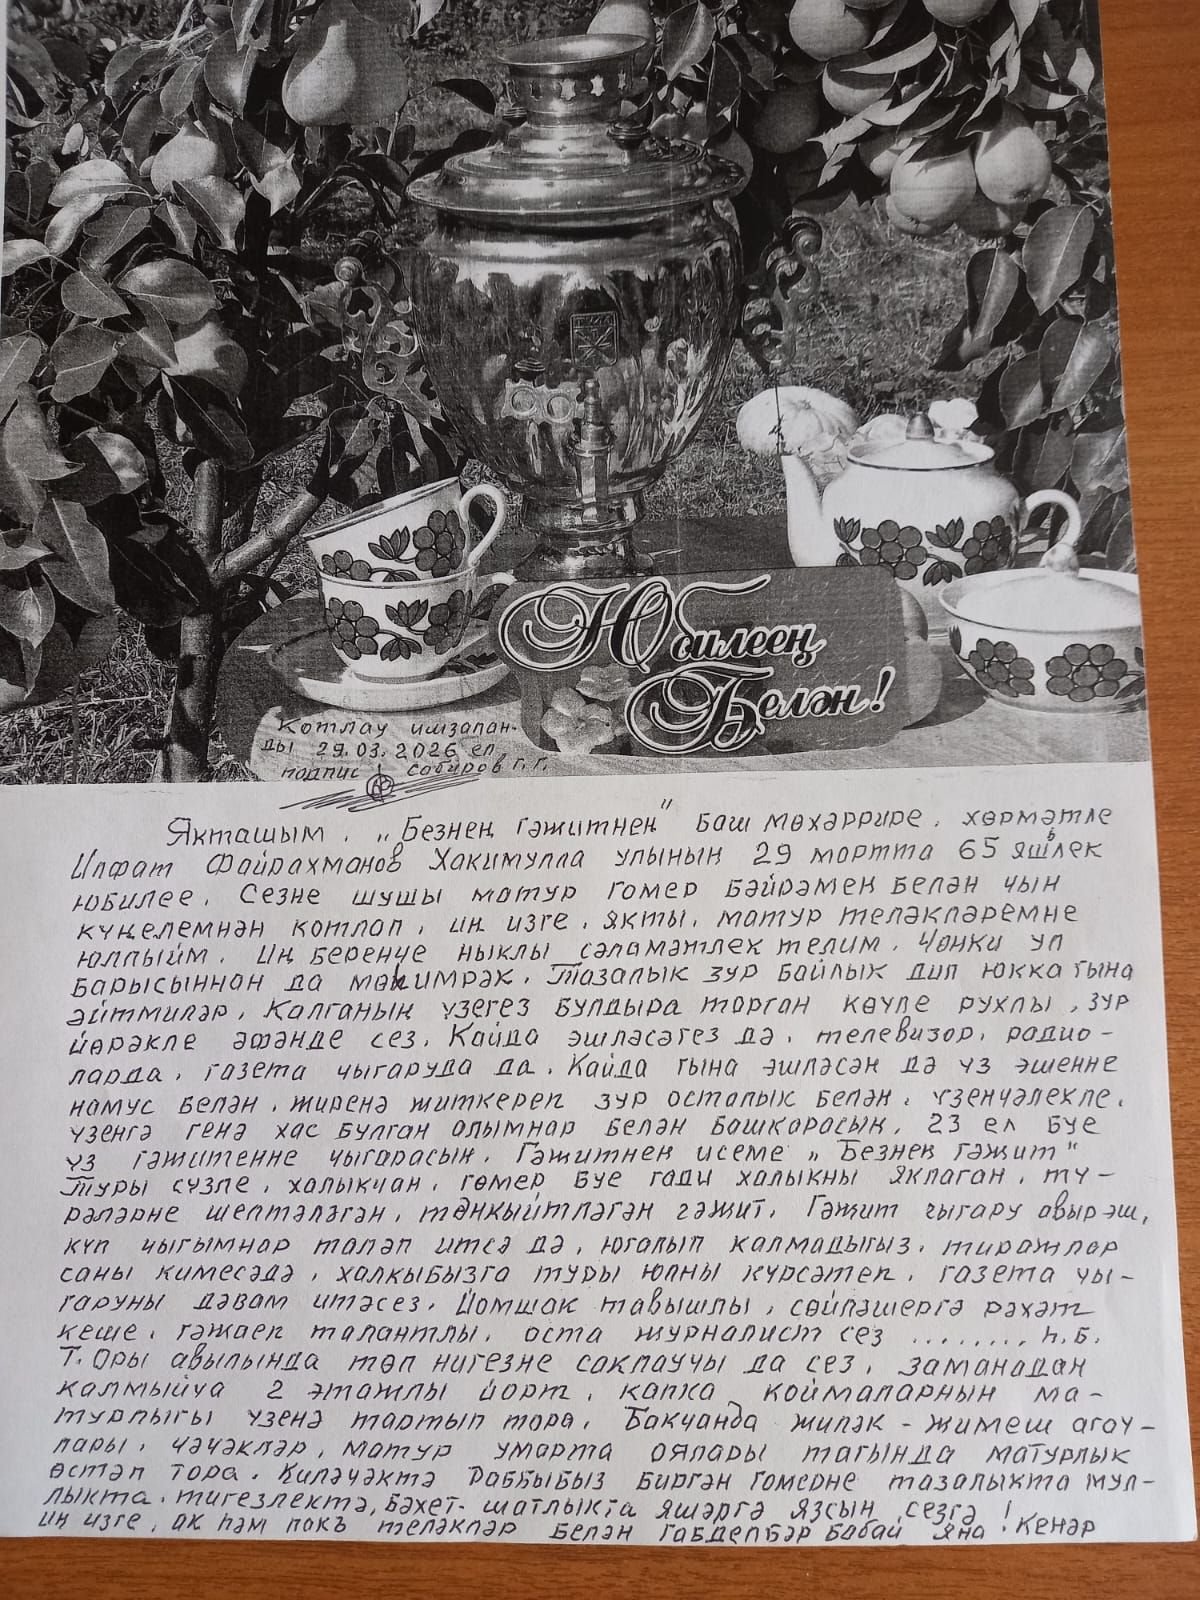 Юбилеең
Белән!
Котлау ишзапан-
ды 29.03.2026 ел
подпис Сабиров Г. Г.
Якташым, „Безнең гәҗитнең" баш мөхәррире, хөрмәтле
Илфат Файрахманов Хакимулла улының 29 мартта 65 яшьлек
юбилее. Сезне шушы матур гомер бәйрәмең белән чын
күңелемнән котлап, иң изге, якты, матур теләкләремне
юллыйм. Иң беренче ныклы сәламәтлек телим. Чөнки ул
барысыннан да мөһимрәк. Тазалык зур байлык дип юкка гына
әйтмиләр. Калганың үзегез булдыра торган көчле рухлы, зур
йөрәкле әфәнде сез. Кайда эшләсәгез дә, телевизор, радио-
ларда, газета чыгаруда да. Кайда гына эшләсән дә үз эшенне
намус белән, җиренә җиткереп зур осталык белән, үзенчәлекле,
үзенгә генә хас булган алымнар белән башкарасың. 23 ел буе
үз гәҗитенне чыгарасың. Гәҗитнең исеме „Безнең гәҗит"
Туры сүзле, халыкчан, гөмер буе гади халыкны яклаган, тү-
рәләрне шелтәләгән, тәнкыйтләгән гәҗит. Гәҗит чыгару авыр эш,
күп чыгымнар таләп итсә дә, югалып калмадыгыз, тиражлар
саны кимесәдә, халкыбызга туры юлны күрсәтеп, газета чы-
гаруны дәвам итәсез. Йомшак тавышлы, сөйләшергә рәхәт
кеше, гәҗәеп талантлы, оста журналист сез ........, һ.б.
Т. Оры авылында төп нигезне саклаучы да сез, заманадан
калмыйча 2 этажлы йорт, капка коймаларнын ма-
турлыгы үзенә тартып тора. Бакчанда җиләк-җимеш агач-
лары, чәчәкләр, матур умарта оялары тагында матурлык
өстәп тора. Киләчәктә Раббыбыз биргән гомерне тазалыкта мул-
лыкта, тигезлектә, бәхет-шатлыкта яшәргә язсын сезгә!
иң изге, ак һәм пакь теләкләр белән Габделбәр бабай Яңа Кенәр